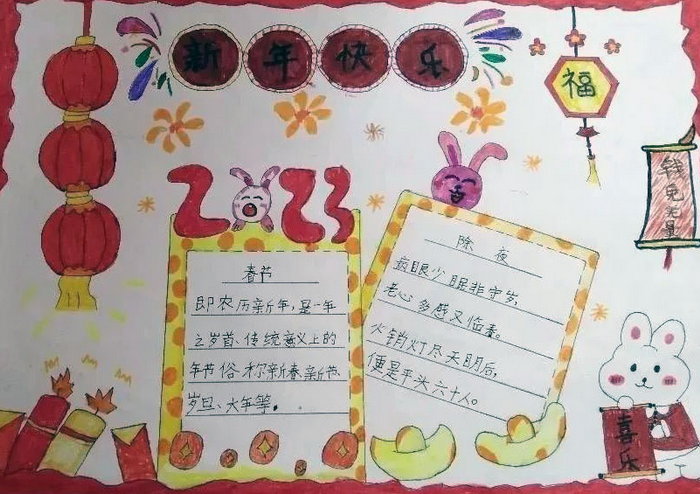 新年快乐
福
钱兔无量
2023
春节
即农历新年,是一年
之岁首、传统意义上的
年节俗称新春新节、
岁旦、大年等。
除夜
病眼少眠非守岁,
老心多感又临春。
火销灯尽天明后,
便是平头六十人。
喜乐